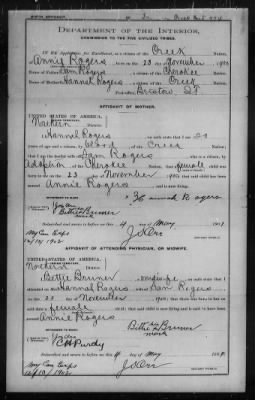 BIRTH AFFIDAVIT.
DEPARTMENT OF THE INTERIOR,
COMMISSION TO THE FIVE CIVILIZED TRIBES.
IN RE Application for Enrollment, as a citizen of the Creek Nation,
of Annie Rogers, born on the 23 day of November, 190
Name of Father: Sam Rogers a citizen of the Cherokee Nation.
Name of Mother: Hannah Rogers a citizen of the Creek Nation.
Post-office, Bristow I.T.
AFFIDAVIT OF MOTHER.
UNITED STATES OF AMERICA,
Northern District.
I, Hannah Rogers, on oath state that I am
years of age and a citizen, by blood, of the Creek Nation;
that I am the lawful wife of Sam Rogers, who is a citizen, by
adoption of the Cherokee Nation; that a female child was
born to me on the 23 day of November, that said child has been
named Annie Rogers, and is now living.
Hannah Rogers
WITNESSES TO MARK:
Bettie Bruner
Subscribed and sworn to before me this 4 day of May, 190
My Com Exps
J W Orr
AFFIDAVIT OF ATTENDING PHYSICIAN, OR MIDWIFE.
UNITED STATES OF AMERICA,
Northern District.
I, Bettie Bruner, a midwife, on oath state that I
attended on Mrs. Hannah Rogers, wife of Sam Rogers
on the 23 day of November, 190; that there was born to her on said date a
female child; that said child is now living and is said to have been named
Annie Rogers
Bettie Bruner
mark
WITNESSES TO MARK:
Purdy
Subscribed and sworn to before me this 4 day of May, 190
My Com Exps
J W Orr